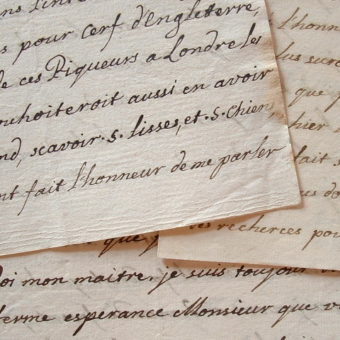 s pour cerf d'Engleterre,
de ces Piqueurs a Londre les
ouhoiteroit aussi en avoir
nd, scavoir .5. lisses, et .5. chiens
nt fait l'honneur de me parler
l'honneur
lus
que
fait
res recherces pou
oi mon maitre, je suis toujour
ferme esperance Monsieur que v